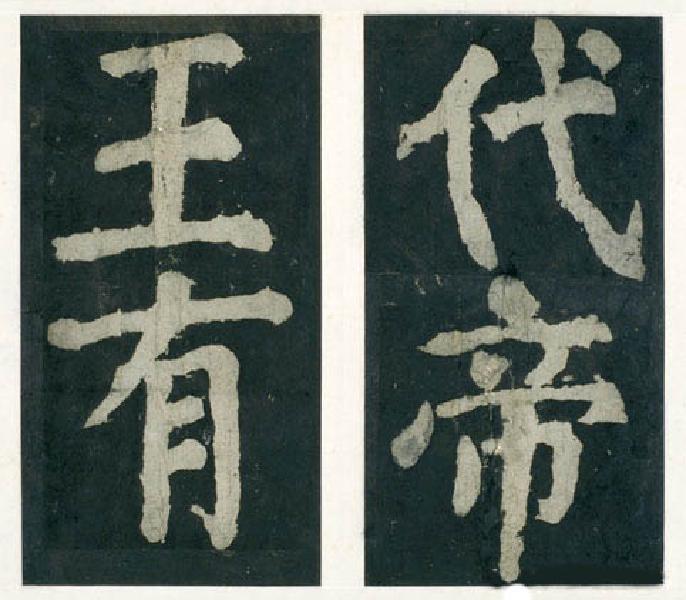 代帝
王有